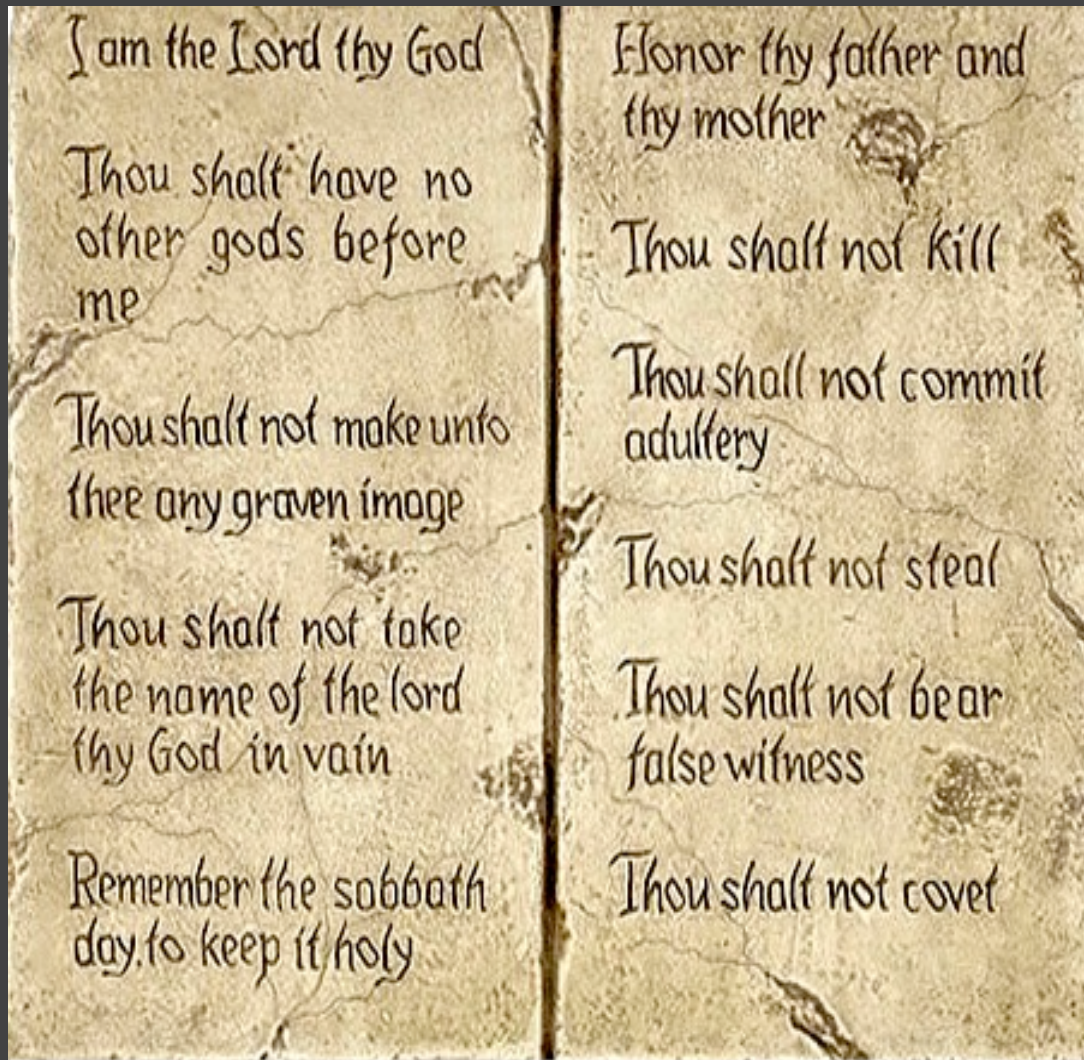 I am the Lord thy God
Thou shalt have no
other gods before
me
Thou shalt not make unto
thee any graven image
Thou shalt not take
the name of the lord
thy God in vain
Remember the sabbath
day.to keep it holy
Honor thy father and
thy mother
Thou shalt not kill
Thou shall not commit
adultery
Thou shalt not steal
Thou shalt not bear
false witness
Thou shalt not covet